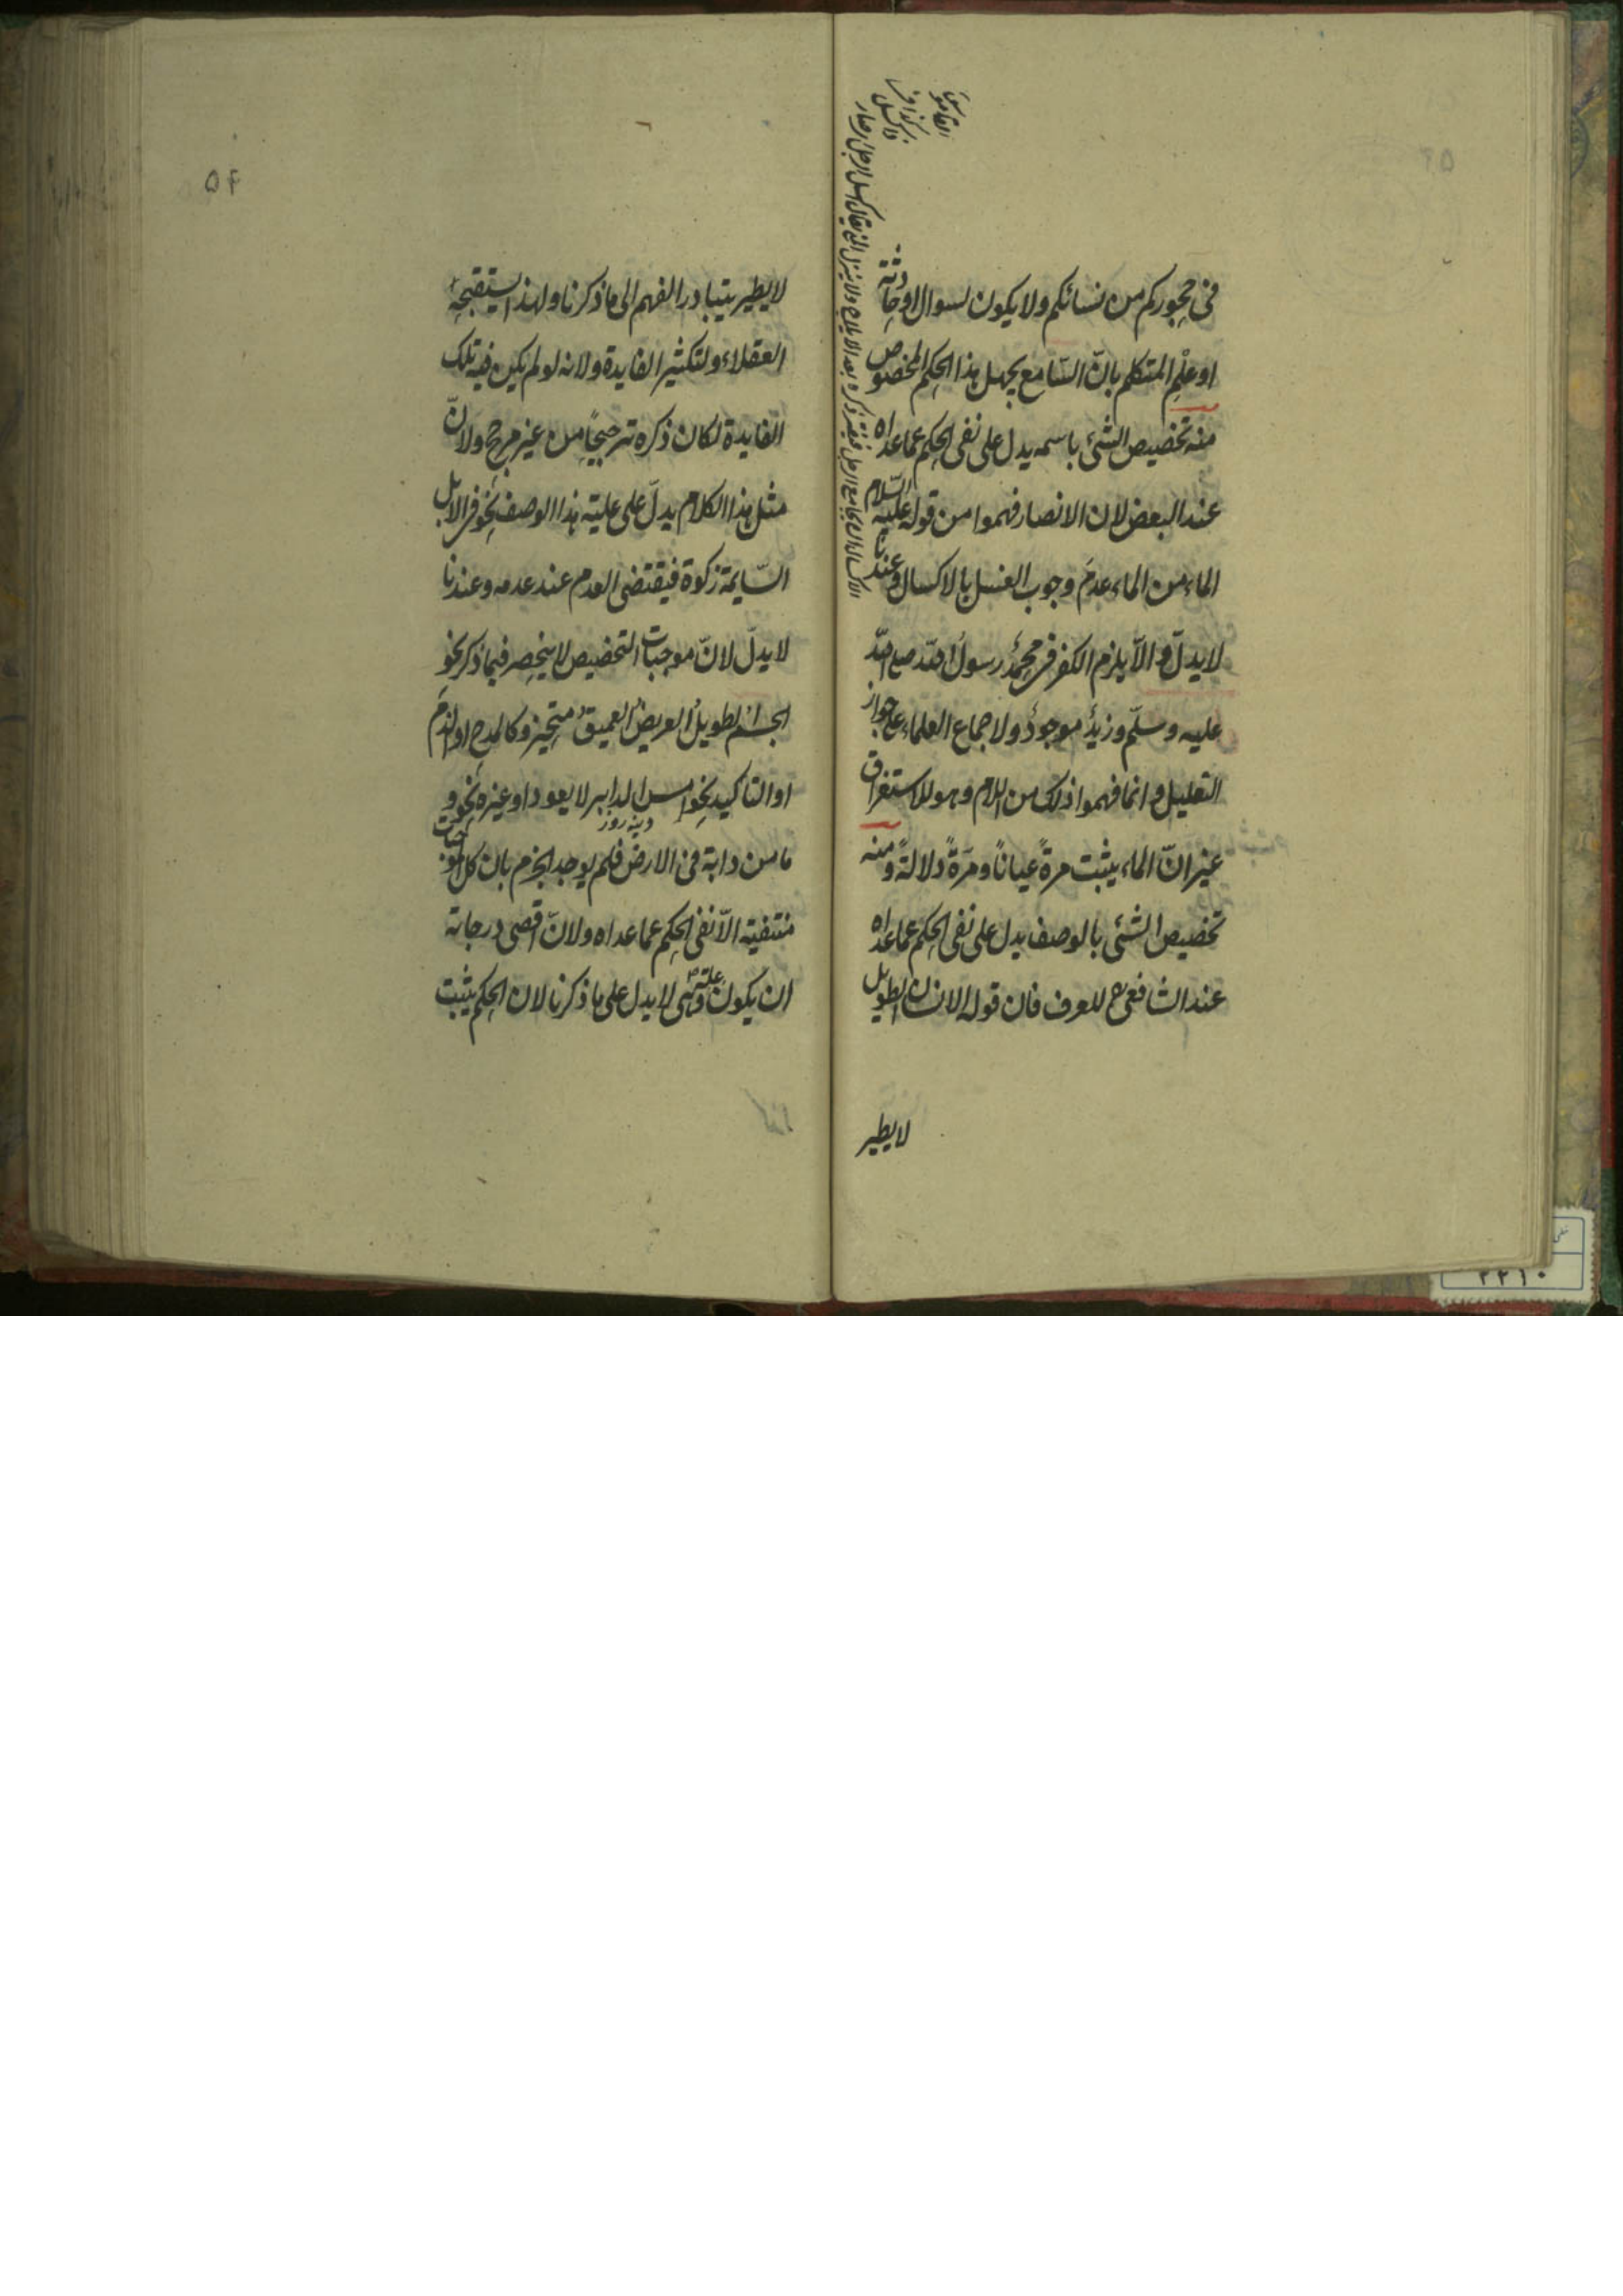 في حجوركم من نسائكم ولا يكون لسوال او حادثة
او علم المتكلم بانّ السّامع يجهل هذا الحكم المخصوص
منه تخصيص الشئ باسمه يدل على نفى الحكم عما عداه
عند البعض لان الانصار فهموا من قوله عليه السّلام
الماء من الماء عدم وجوب الغسل بالاكسال وعندنا
لا يدلّ والاّ يلزم الكفر فى محمدٌ رسولُ اللّه صلع اللّه
عليه وسلّم وزيدٌ موجودٌ ولاجماع العلماء على جواز
التعليل وانما فهموا ذلك من اللام وهو للاستغراق
غير انّ الماء يثبت مرةً عياناً ومرّةً دلالةً ومنه
تخصيص الشئ بالوصف يدل على نفى الحكم عما عداه
عند الشافعى رح للعرف فان قوله الانسان الطويل
لا يطير
القاموس
الاكسال ان يجامع الرجل
ذكره بعد الايلاج ولا ينزل
يقال اكسل الرجل
۵۴
لا يطير يتبادر الفهم الى ما ذكرنا ولهذا يستقبحه
العقلاء ولتكثير الفايدة ولانه لو لم يكن فيه تلك
الفايدة لكان ذكره ترجيحاً من غير مرجح ولانّ
مثل هذا الكلام يدلّ على علية هذا الوصف نحو فى الابل
السّايمة زكوة فيقتضى العدم عند عدمه وعندنا
لا يدلّ لانّ موجبات التخصيص لا ينحصر فيما ذكر نحو
الجسمُ الطويلُ العريضُ العميقُ متحيز وكالمدح او الذم
او التاكيد نحو امس الدابر لا يعود او غيره نحو و
دينه روز
ما من دابة فى الارض فلم يوجد الجزم بان كل الموجبات
منتفية الاّ نفى الحكم عما عداه ولانّ اقصى درجاته
ان يكون علة وهى لا يدل على ما ذكرنا لان الحكم يثبت
۲۲۱۰